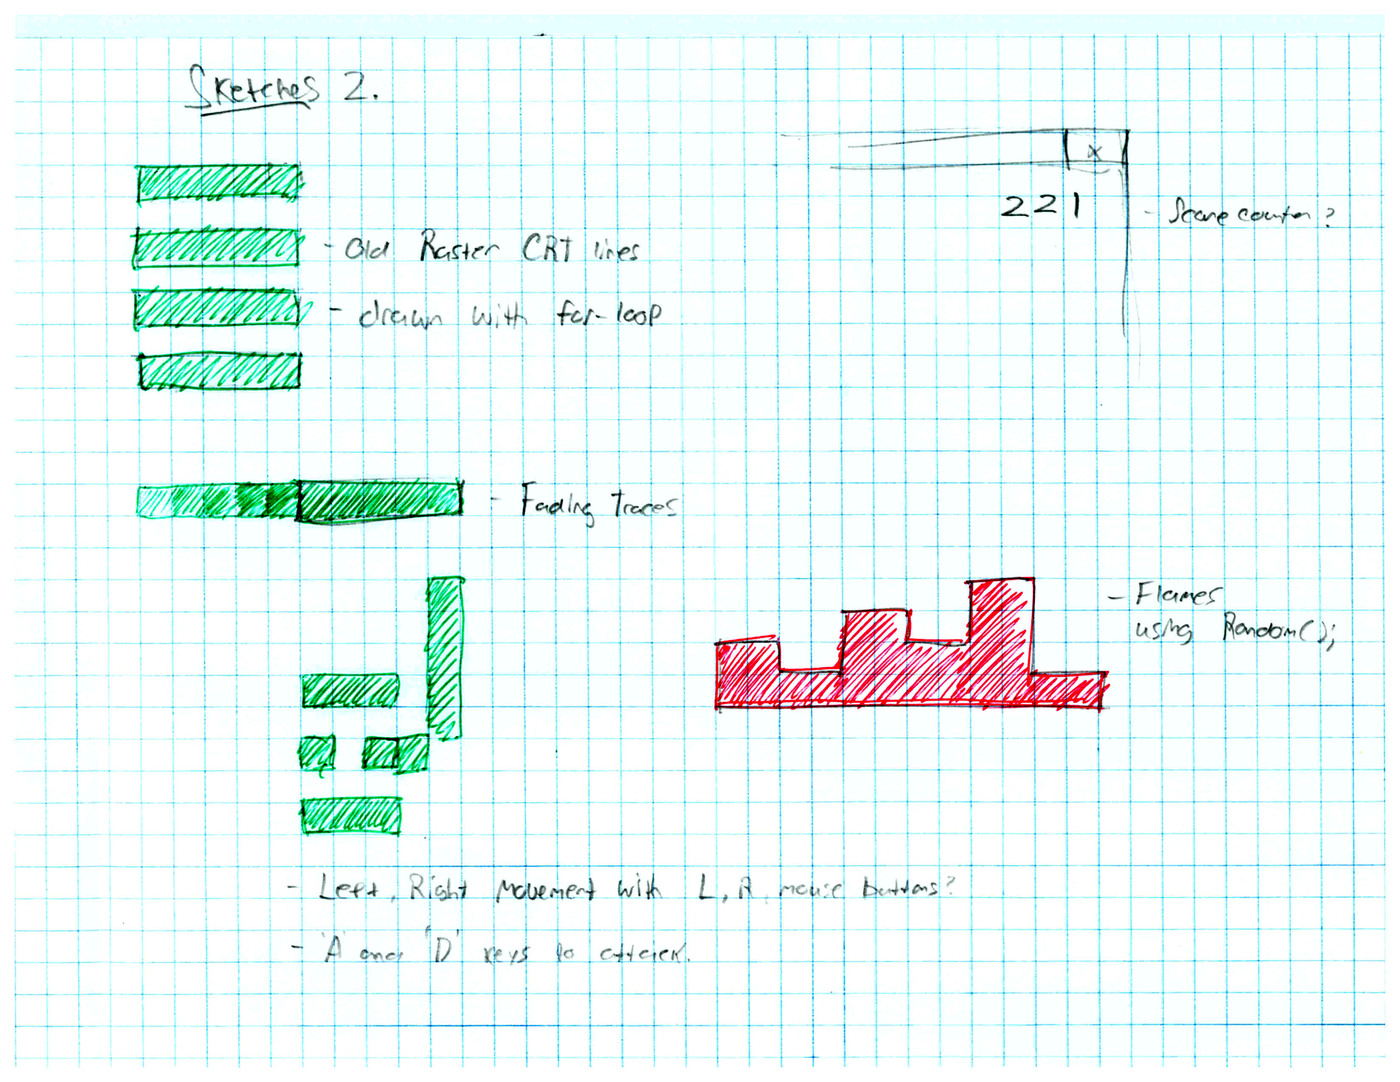 Sketches 2.
x
221
- Score counter?
- Old Raster CRT lines
- drawn with for-loop
- Fading traces
- Flames
using Random();
- Left, Right Movement with L, R, mouse buttons?
- 'A' and 'D' keys to attack.